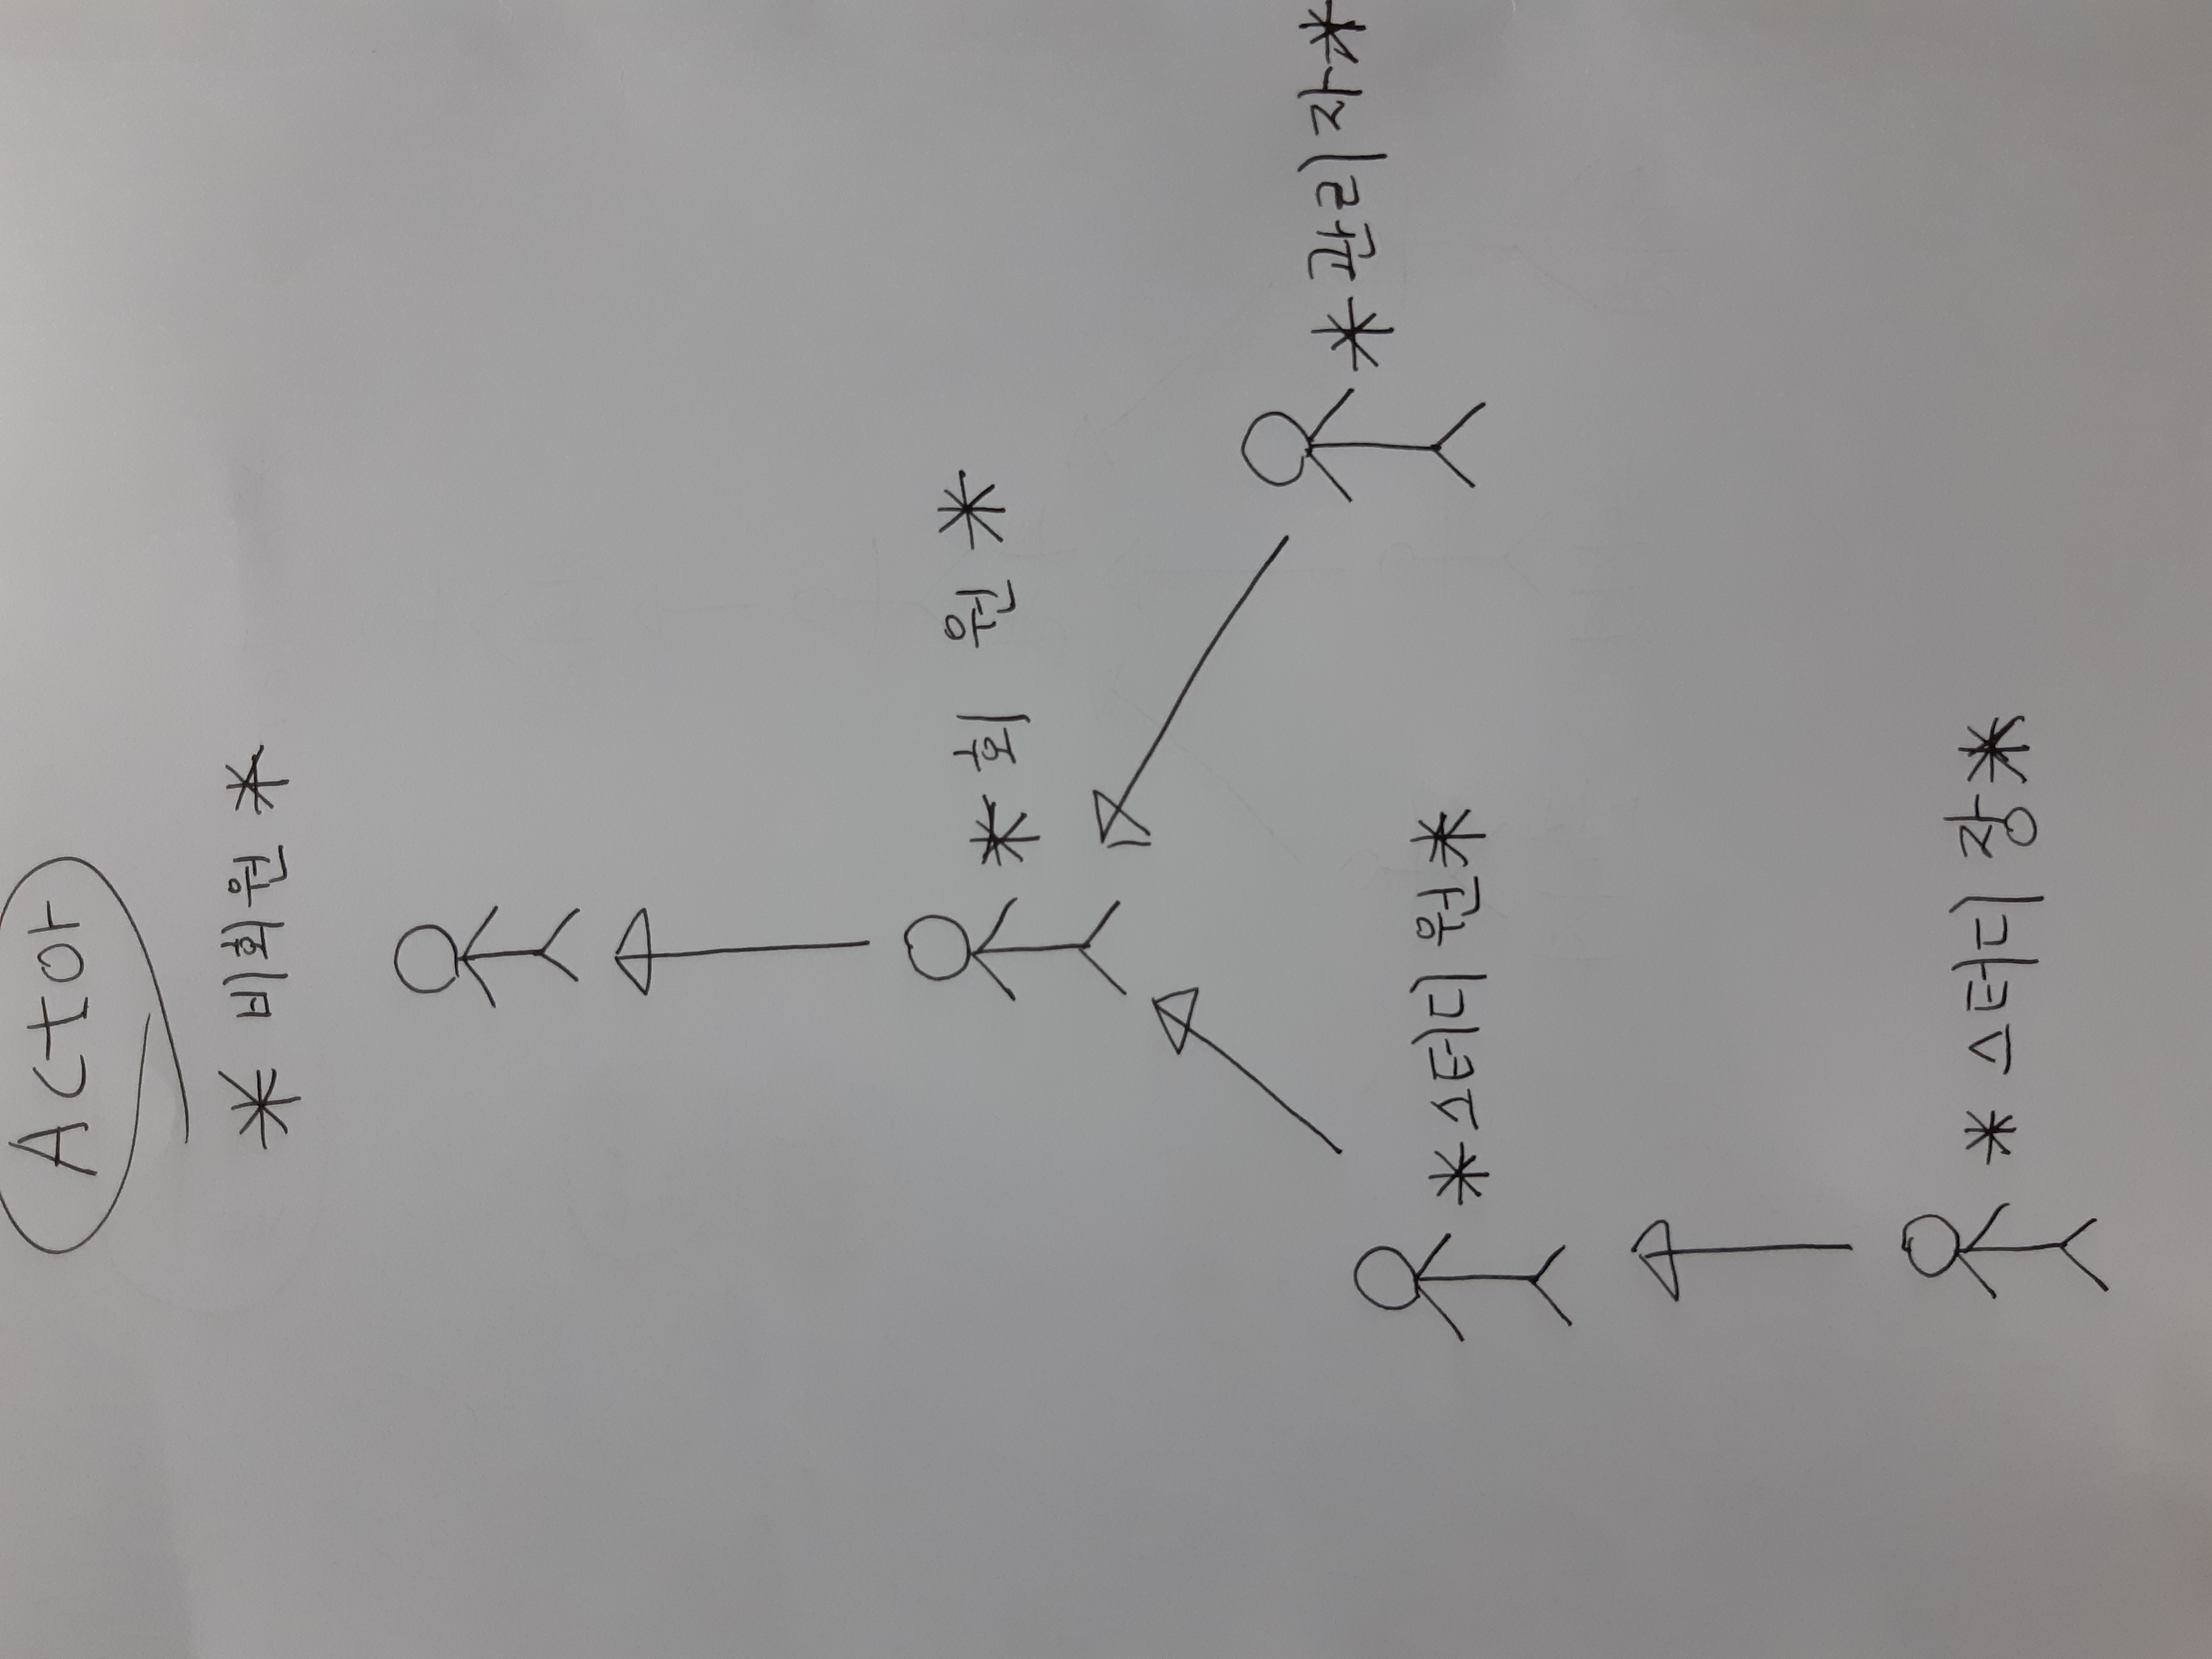 Actor
* 비회원 *
* 회 원 *
* 관리자 *
* 스터디 원 *
* 스터디 장 *